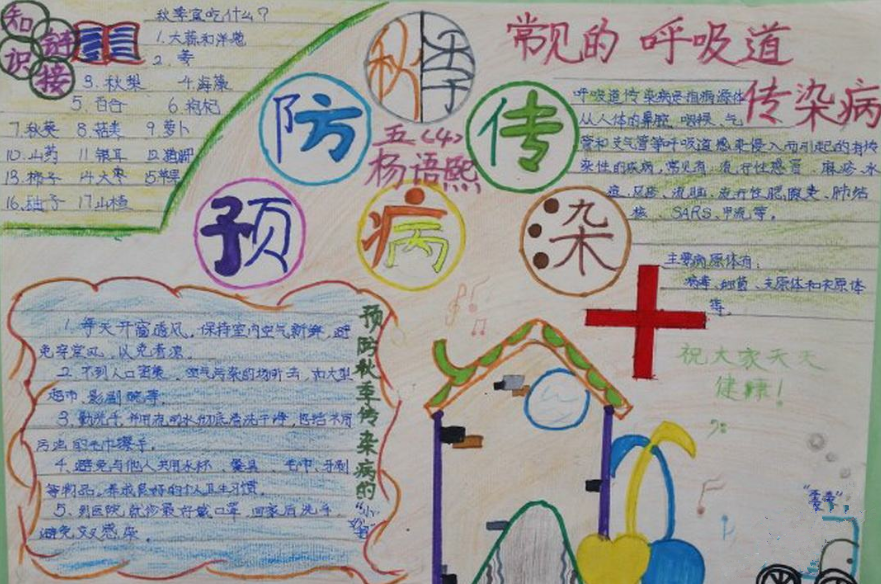 知识链接
秋季宜吃什么？
1.大蒜和洋葱
2.枣
3.秋梨 4.海藻
5.百合 6.枸杞
7.秋葵 8.菇类 9.萝卜
10.山药 11.银耳
13.柿子 14.大枣 15.苹果
16.柚子 17.山楂
秋季
预防传染病
五〈4〉
杨语熙
常见的 呼吸道
传染病
呼吸道传染病是指病原体
从人体的鼻腔、咽喉、气
管和支气管等呼吸道感染侵入而引起的有传
染性的疾病，常见有：流行性感冒、麻疹、水
痘、风疹、流脑、流行性腮腺炎、肺结
核、SARS、甲流等。
主要病原体有：
病毒、细菌、支原体和衣原体
等。
祝大家天天
健康！
预防秋季传染病的
1.每天开窗通风，保持室内空气新鲜，避
免穿堂风，以免着凉。
2.不到人口密集、空气污染的场所去，如大型
超市、影剧院等。
3.勤洗手，并用流动水彻底清洗干净，包括不用
污浊的毛巾擦手。
4.避免与他人共用水杯、餐具、毛巾、牙刷
等物品。养成良好的个人卫生习惯。
5.到医院就诊最好戴口罩，回家后洗手，
避免交叉感染。